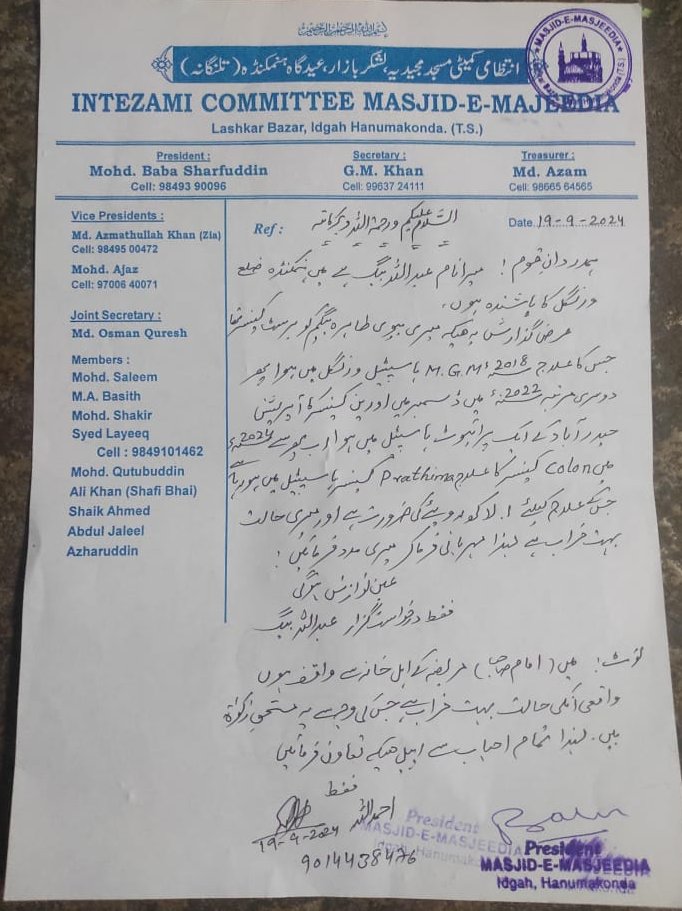 بسم اللہ الرحمن الرحیم
انتظامی کمیٹی مسجد مجیدیہ، لشکر بازار، عیدگاہ ہنمکنڈہ (تلنگانہ)
MASJID-E-MASJEEDIA
INTEZAMI COMMITTEE MASJID-E-MAJEEDIA
Lashkar Bazar, Idgah Hanumakonda. (T.S.)
President :
Mohd. Baba Sharfuddin
Cell: 98493 90096
Secretary :
G.M. Khan
Cell: 99637 24111
Treasurer :
Md. Azam
Cell: 98665 64565
Vice Presidents :
Md. Azmathullah Khan (Zia)
Cell: 98495 00472
Mohd. Ajaz
Cell: 97006 40071
Joint Secretary :
Md. Osman Quresh
Members :
Mohd. Saleem
M.A. Basith
Mohd. Shakir
Syed Layeeq
Cell : 9849101462
Mohd. Qutubuddin
Ali Khan (Shafi Bhai)
Shaik Ahmed
Abdul Jaleel
Azharuddin
السلام علیکم ورحمۃ اللہ وبرکاتہ
Ref :
Date. 19-9-2024
ہمدردانِ قوم! میرا نام عبداللہ بیگ ہے میں ہنمکنڈہ ضلع
ورنگل کا باشندہ ہوں۔
عرض گذارش یہ ہیکہ میری بیوی طاہرہ بیگم کو بریسٹ کینسر تھا
جس کا علاج 2018ء M.G.M ہاسپٹل ورنگل میں ہوا پھر
دوسری مرتبہ 2022ء میں ڈسمبر میں اورین کینسر کا آپریشن
حیدرآباد کے ایک پرائیوٹ ہاسپٹل میں ہوا اب پھر سے 2024ء
میں colon کینسر کا علاج Prathima کینسر ہاسپٹل میں ہو رہا ہے
جس کے علاج کیلئے لاکھ روپئے کی ضرورت ہے اور میری حالت
بہت خراب ہے لہذا مہربانی فرما کر میری مدد فرمائیں!
عین نوازش ہوگی
فقط درخواست گزار عبداللہ بیگ
نوٹ! میں (امام صاحب) مریضہ کے اہل خانہ سے واقف ہوں
واقعی انکی حالت بہت خراب ہے جس کی وجہ سے یہ مستحق زکوٰۃ
ہیں۔ لہذا تمام احباب سے اپیل ہیکہ تعاون فرمائیں
فقط
احمد اللہ
19-9-2024
9014438476
President
MASJID-E-MASJEEDIA
Idgah, Hanumakonda
President
MASJID-E-MASJEEDIA
Idgah, Hanumakonda